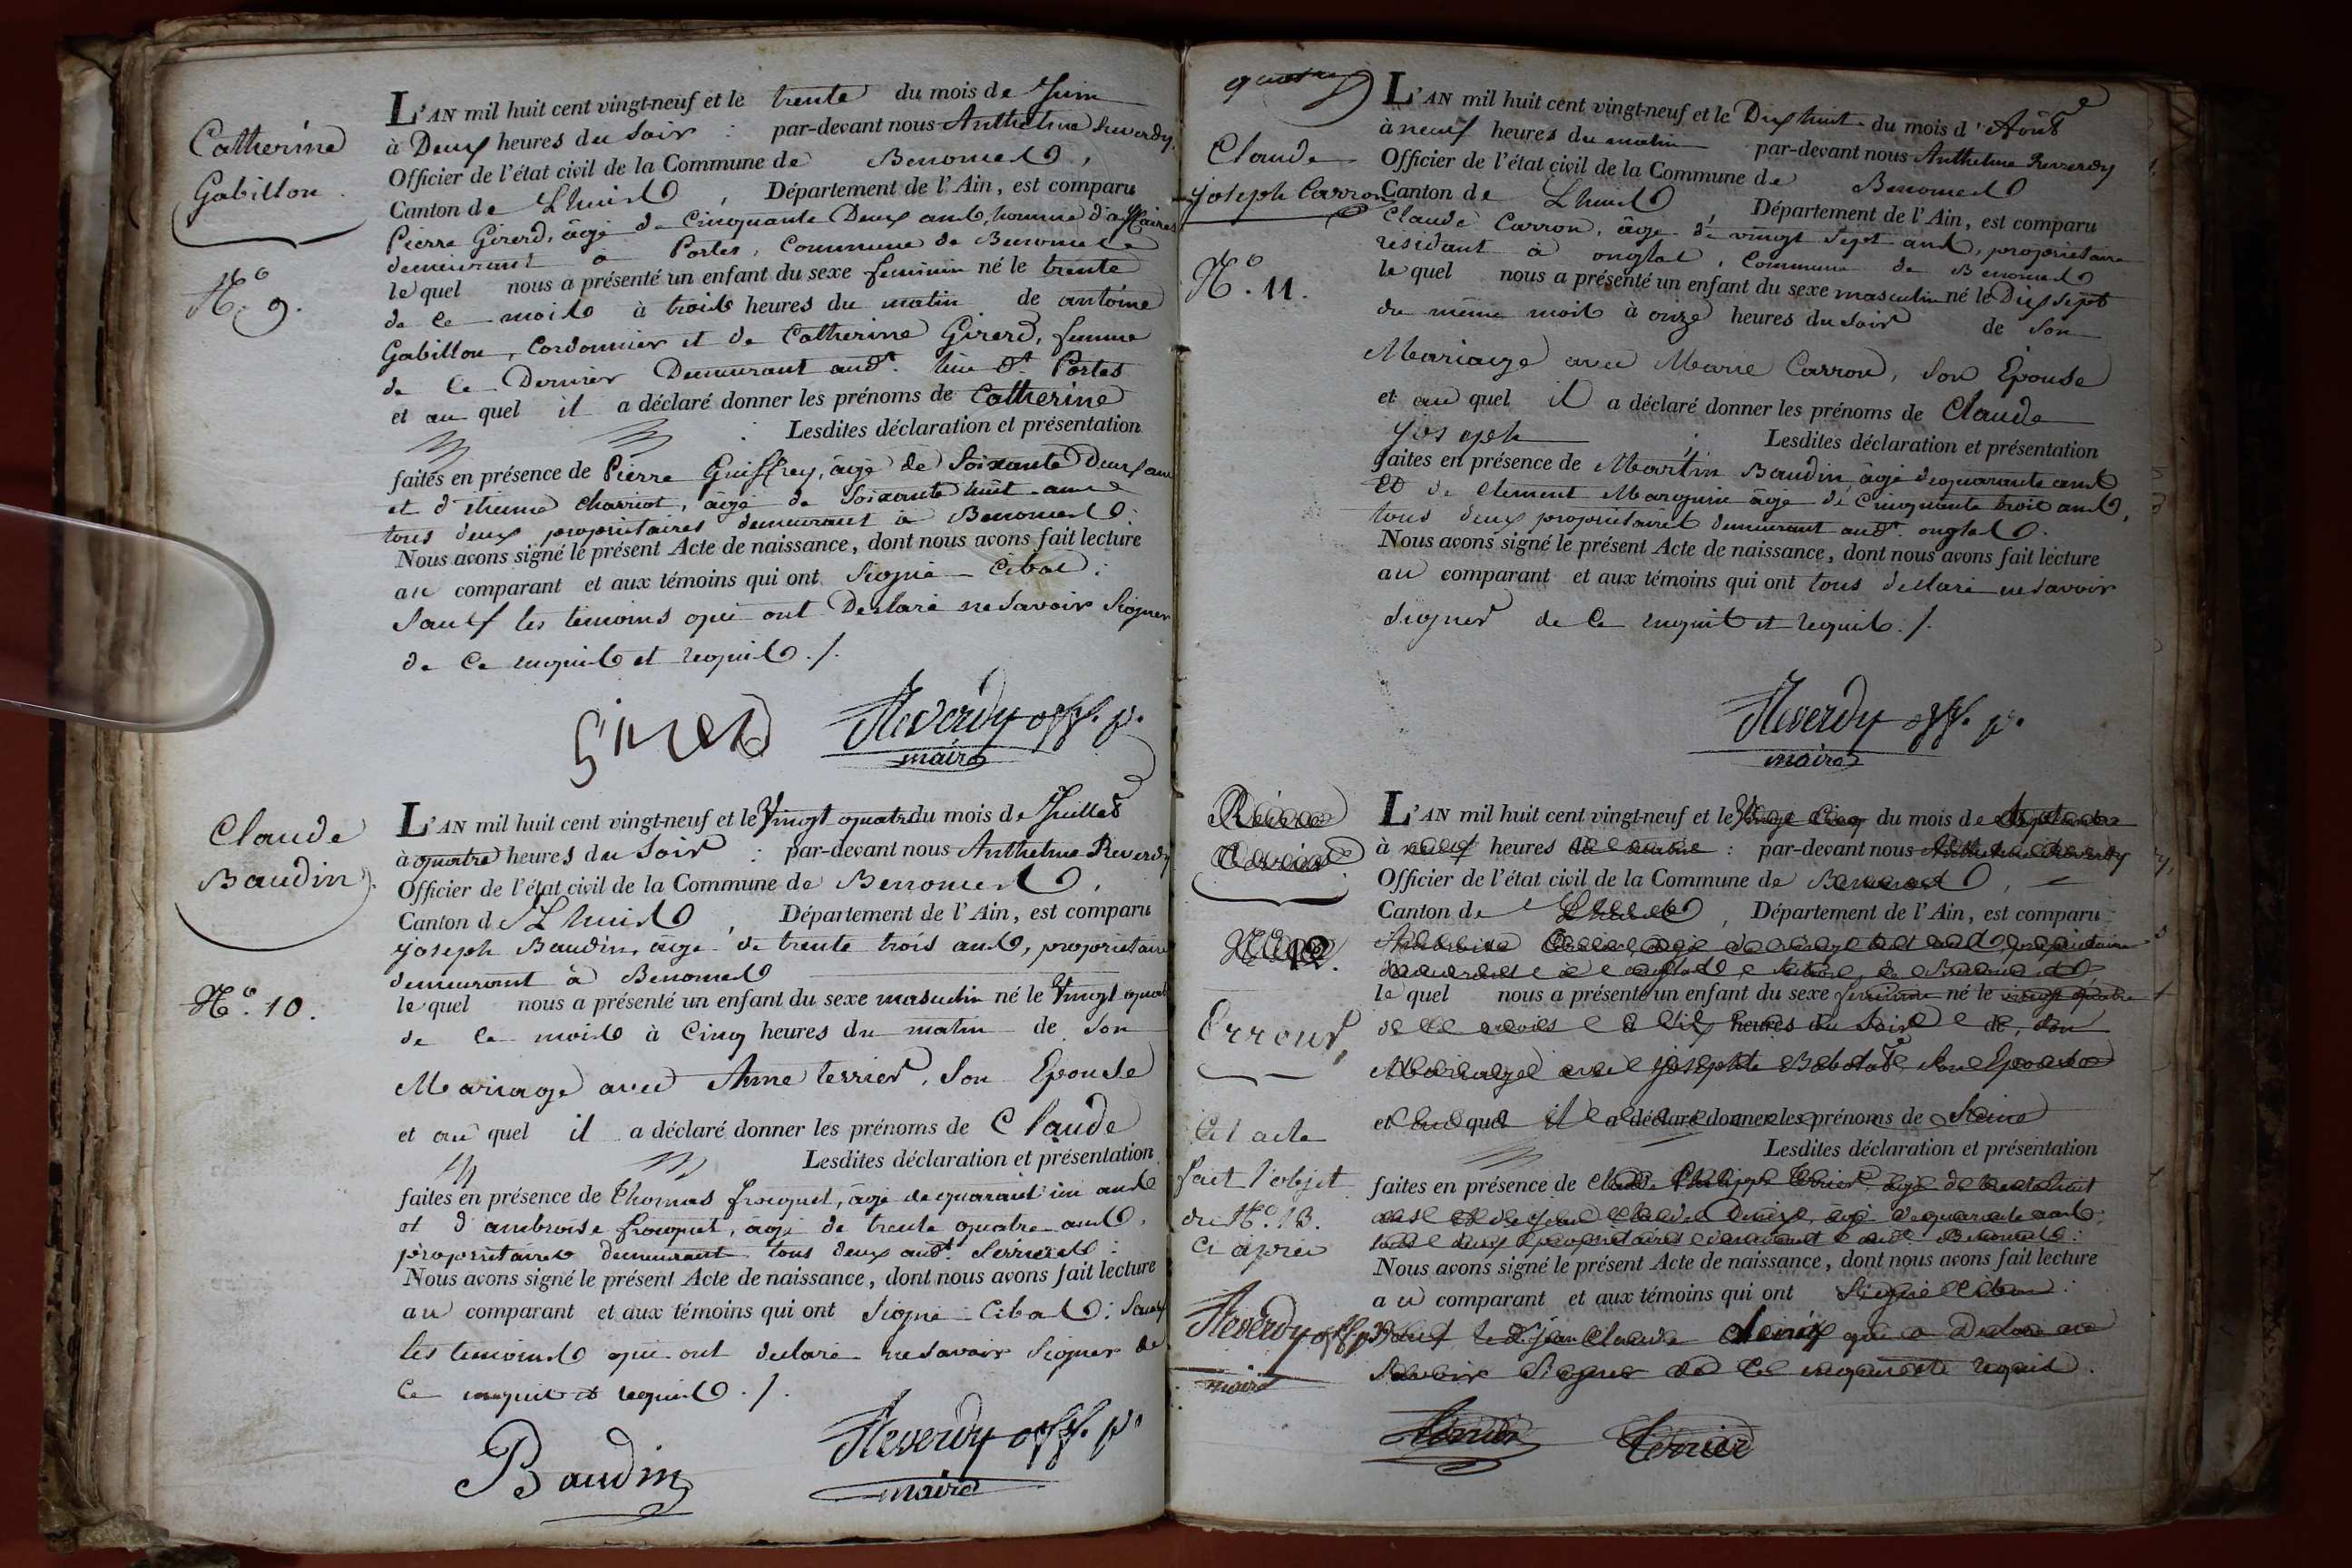 Catherine
Gabillon.
N.º 9.
L'AN mil huit cent vingt-neuf et le trente du mois de Juin
à Deux heures du Soir : par-devant nous Anthelme Reverdy,
Officier de l'état civil de la Commune de Benonces,
Canton de Lhuis, Département de l'Ain, est comparu
Pierre Girerd, âgé de Cinquante Deux ans, homme d'affaires
demeurant à Portes, Commune de Benonces
le quel nous a présenté un enfant du sexe feminin né le trente
de ce mois à trois heures du matin de antoine
Gabillon, Cordonnier et de Catherine Girerd, femme
de ce Dernier Demeurant aud.t lieu d. Portes
et au quel il a déclaré donner les prénoms de Catherine
Lesdites déclaration et présentation
faites en présence de Pierre Guiffrey, âgé de Soixante Deux ans
et d'etienne charriot, âgé de Soixante huit ans
tous deux propriétaires demeurant à Benonces :
Nous avons signé le présent Acte de naissance, dont nous avons fait lecture
au comparant et aux témoins qui ont Signé
Sauf les témoins qui ont Declaré ne Savoir Signer
de ce enquis et requis ./.
Girerd Reverdy off. p.
maire
Claude
Baudin.
N.º 10.
L'AN mil huit cent vingt-neuf et le Vingt quatre du mois de Juillet
à quatre heures du Soir : par-devant nous Anthelme Reverdy
Officier de l'état civil de la Commune de Benonces,
Canton de Lhuis, Département de l'Ain, est comparu
joseph Baudin, âgé de trente trois ans, propriétaire
demeurant à Benonces
le quel nous a présenté un enfant du sexe masculin né le Vingt quatre
de ce mois à Cinq heures du matin de Son
Mariage avec Anne terrier, Son Epouse
et au quel il a déclaré donner les prénoms de Claude
Lesdites déclaration et présentation
faites en présence de Thomas froquet, âgé de quarant'un ans
et d'ambroise froquet, âgé de trente quatre ans,
propriétaires demeurant tous deux aud.t
Nous avons signé le présent Acte de naissance, dont nous avons fait lecture
au comparant et aux témoins qui ont Signé : Sauf
les temoins qui ont declaré ne Savoir Signer de
ce enquis et requis ./.
Baudin Reverdy off. p.
maire
Claude
joseph Carron
N.º 11.
L'AN mil huit cent vingt-neuf et le Dix huit du mois d'Août
à neuf heures du matin par-devant nous Anthelme Reverdy
Officier de l'état civil de la Commune de Benonces
Canton de Lhuis, Département de l'Ain, est comparu
Claude Carron, âgé de vingt Sept ans, propriétaire
résidant à onglas, Commune de Benonces
le quel nous a présenté un enfant du sexe masculin né le Dix Sept
du même mois à onze heures du Soir de Son
Mariage avec Marie Carron, Son Epouse
et au quel il a déclaré donner les prénoms de Claude
joseph Lesdites déclaration et présentation
faites en présence de Martin Baudin âgé de quarante ans
et de Clement Marquin âgé de Cinquante trois ans,
tous deux propriétaires demeurant aud.t onglas.
Nous avons signé le présent Acte de naissance, dont nous avons fait lecture
au comparant et aux témoins qui ont tous declaré ne savoir
Signer de ce enquis et requis ./.
Reverdy off. p.
maire
12.
Erreur,
Cet acte
fait l'objet
du N.º 13.
Ci après
Reverdy off. p.
maire
L'AN mil huit cent vingt-neuf et le Vingt Cinq du mois de Septembre
à neuf heures du matin : par-devant nous Anthelme Reverdy
Officier de l'état civil de la Commune de Benonces,
Canton de Lhuis, Département de l'Ain, est comparu
le quel nous a présenté un enfant du sexe feminin né le vingt quatre
de ce mois à dix heures du Soir de Son
Mariage avec josephte Son Epouse
et au quel il a déclaré donner les prénoms de Reine
Lesdites déclaration et présentation
faites en présence de Claude Philippe terrier, âgé de trente huit
ans et de jean Claude âgé de quarante ans,
tous deux propriétaires demeurant Benonces :
Nous avons signé le présent Acte de naissance, dont nous avons fait lecture
au comparant et aux témoins qui ont Signé
Sauf le d. jean Claude qui a Declaré ne
Savoir Signer de ce enquis et requis.
terrier